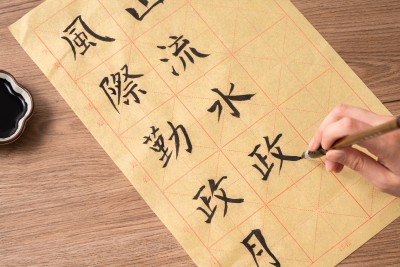 山流水政
風際勤政月